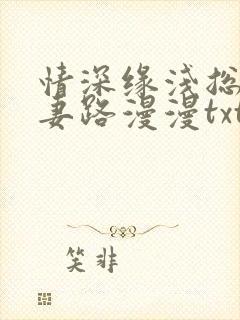 情深缘浅总
妻路漫漫txt
笑非